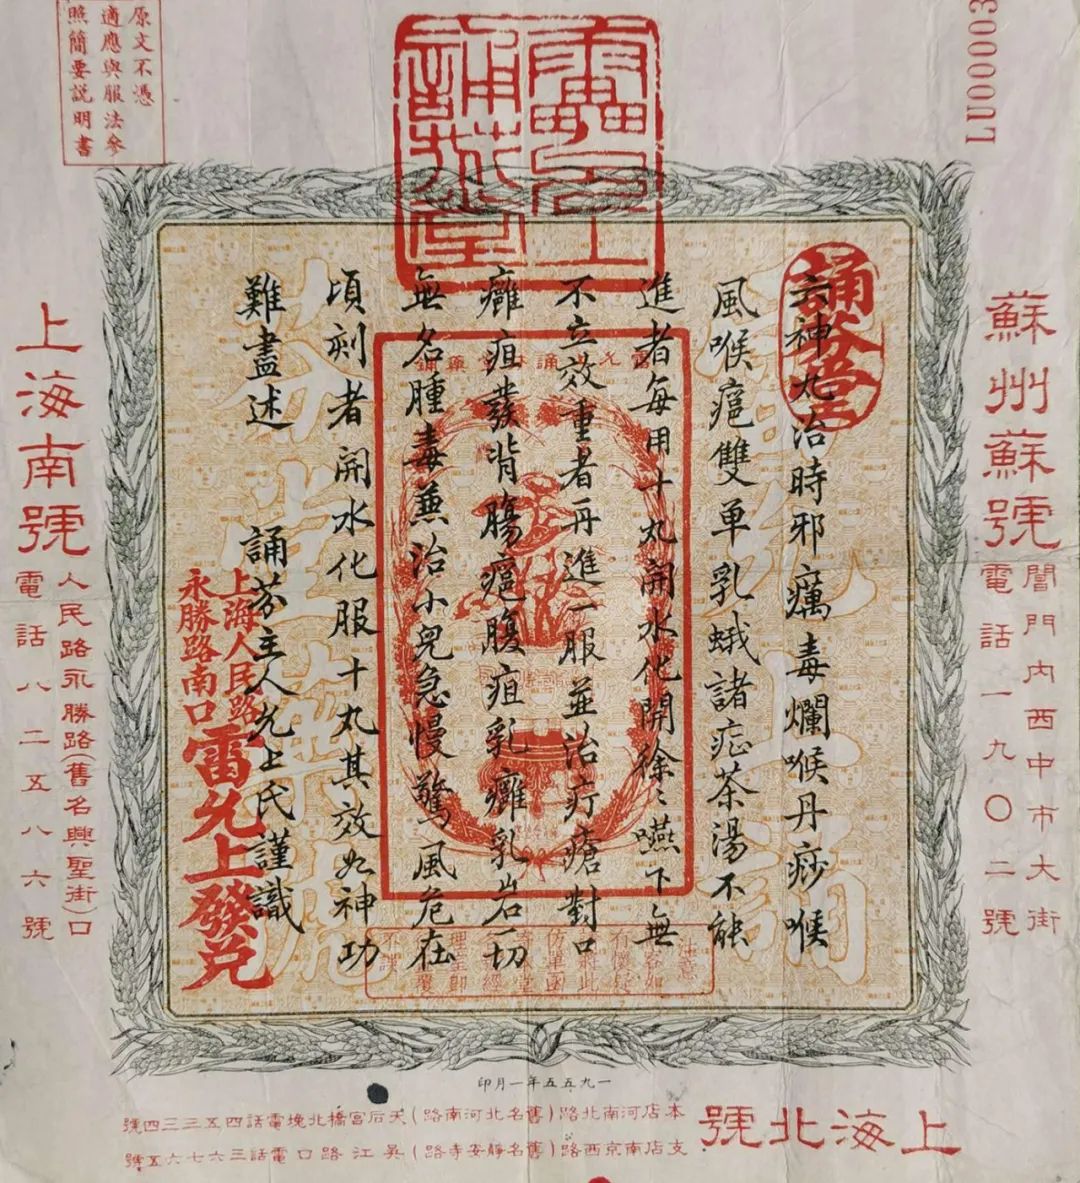 原文不憑
適應與服法參
照簡要説明書
雷允上
誦芬堂
LU00003
誦芬堂
六神丸治時邪癘毒爛喉丹痧喉
風喉癰雙單乳蛾諸症茶湯不能
進者每用十丸開水化開徐〻嚥下無
不立效重者再進一服並治疔瘡對口
癰疽發背腸癰腹疽乳癰乳岩一切
無名腫毒兼治小兒急慢驚風危在
頃刻者開水化服十丸其效如神功
難盡述
誦芬主人允上氏謹識
上海人民路
永勝路南口
雷允上發兌
蘇州蘇號
閶門內西中市大街
電話一九〇二號
上海南號
人民路永勝路(舊名興聖街)口
電話八二五八六號
注意
一九五五年一月印
上海北號
本店河南北路(舊名北河南路)天后宮橋北堍電話四五三三四號
支店南京西路(舊名靜安寺路)吳江路口電話三六七六五號